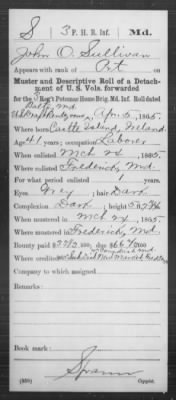 S | 3 P. H. B. Inf. | Md.
John O. Sullivan
Appears with rank of Pvt on
Muster and Descriptive Roll of a Detach-
ment of U. S. Vols. forwarded
for 3 Reg't Potomac Home Brig. Md Inf. Roll dated
Balto, Md
Apr 5, 1865.
Where born Castle Island, Ireland
Age 41 years; occupation Laborer
When enlisted Mch 24, 1865.
Where enlisted Frederick, Md.
For what period enlisted 1 years.
Eyes Grey; hair Dark
Complexion Dark; height 5 ft.
When mustered in Mch 24, 1865.
Where mustered in Frederick, Md.
Bounty paid $ 100; due $ 66 100
Where credited
Company to which assigned
Remarks:
Book mark:
Copyist.